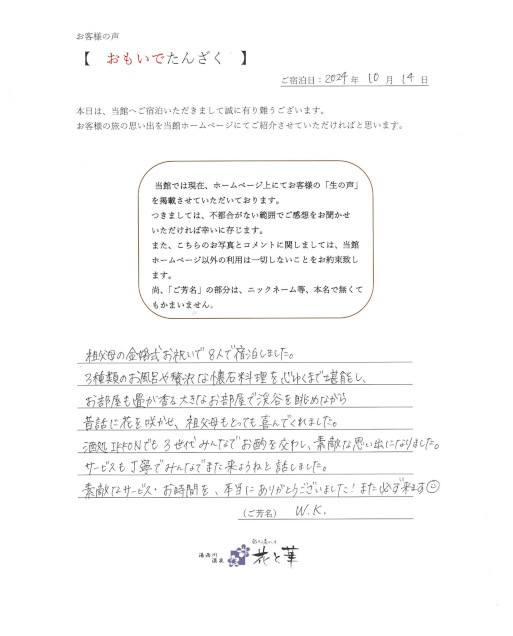 お客様の声
【 おもいでたんざく 】
ご宿泊日：2024年 10月 14日
本日は、当館へご宿泊いただきまして誠に有り難うございます。
お客様の旅の思い出を当館ホームページにてご紹介させていただければと思います。
当館では現在、ホームページ上にてお客様の「生の声」
を掲載させていただいております。
つきましては、不都合がない範囲でご感想をお聞かせ
いただければ幸いに存じます。
また、こちらのお写真とコメントに関しましては、当館
ホームページ以外の利用は一切しないことをお約束致し
ます。
尚、「ご芳名」の部分は、ニックネーム等、本名で無くて
もかまいません。
祖父母の金婚式お祝いで8人で宿泊しました。
3種類のお風呂や贅沢な懐石料理を心ゆくまで堪能し、
お部屋も畳が香る大きなお部屋で渓谷を眺めながら
昔話に花を咲かせ、祖父母もとっても喜んでくれました。
酒処 IPPONでも3世代みんなでお酌を交わし、素敵な思い出になりました。
サービスも丁寧でみんなでまた来ようねと話しました。
素敵なサービス・お時間を、本当にありがとうございました！また必ず来ます☺
（ご芳名） W.K.
湯西川
温泉
花と華